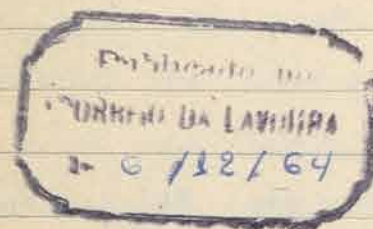 Publicado no
CORREIO DA LAVOURA
6 /12/ 64